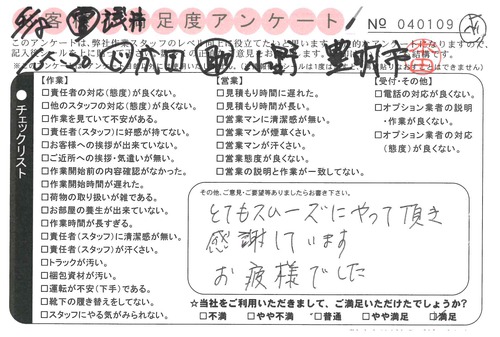 客 足度アンケート!
No 040109
このアンケートは、弊社作業スタッフのレベル向上に役立てたいと思います
チェックリスト
【作業】
□責任者の対応(態度)が良くない。
□他のスタッフの対応(態度)が良くない。
□作業を見ていて不安がある。
□責任者(スタッフ)に好感が持てない。
□お客様への挨拶が出来ていない。
□ご近所への挨拶・気遣いが無い。
□作業開始前の内容確認がなかった。
□作業開始時間が遅れた。
□荷物の取り扱いが雑である。
□お部屋の養生が出来ていない。
□作業時間が長すぎる。
□責任者(スタッフ)に清潔感が無い。
□責任者(スタッフ)が汗くさい。
□トラックが汚い。
□梱包資材が汚い。
□運転が不安(下手)である。
□靴下の履き替えをしてない。
□スタッフにやる気がみられない。
【営業】
□見積もり時間に遅れた。
□見積もり時間が長い。
□営業マンに清潔感が無い。
□営業マンが煙草くさい。
□営業マンが汗くさい。
□営業態度が良くない。
□営業の説明と作業が一致してない。
【受付・その他】
□電話の対応が良くない。
□オプション業者の説明
・作業が良くない。
□オプション業者の対応
(態度)が良くない。
その他、ご意見・ご要望等ありましたらお書き下さい。
とてもスムーズにやって頂き
感謝しています
お疲様でした
☆当社をご利用いただきまして、ご満足いただけたでしょうか?
□不満 □やや不満 □普通 □やや満足 □満足